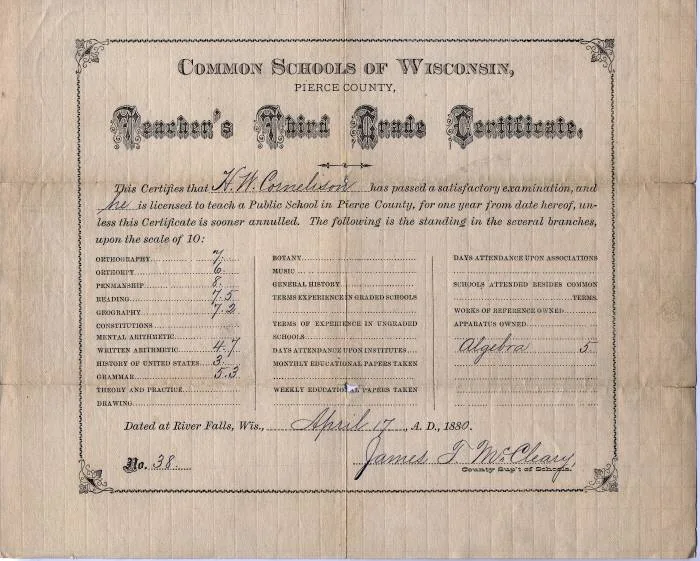 COMMON SCHOOLS OF WISCONSIN,
PIERCE COUNTY,
Teacher's Third Grade Certificate.
This Certifies that H. W. Cornelison has passed a satisfactory examination, and
he is licensed to teach a Public School in Pierce County, for one year from date hereof, un-
less this Certificate is sooner annulled. The following is the standing in the several branches,
upon the scale of 10:
ORTHOGRAPHY 7.
ORTHOEPY 6.
PENMANSHIP 8.
READING 7.5
GEOGRAPHY 7.2
CONSTITUTIONS
MENTAL ARITHMETIC
WRITTEN ARITHMETIC 4.7
HISTORY OF UNITED STATES 3.
GRAMMAR 5.3
THEORY AND PRACTICE
DRAWING
BOTANY
MUSIC
GENERAL HISTORY
TERMS EXPERIENCE IN GRADED SCHOOLS
TERMS OF EXPERIENCE IN UNGRADED
SCHOOLS
DAYS ATTENDANCE UPON INSTITUTES
MONTHLY EDUCATIONAL PAPERS TAKEN
WEEKLY EDUCATIONAL PAPERS TAKEN
DAYS ATTENDANCE UPON ASSOCIATIONS
SCHOOLS ATTENDED BESIDES COMMON
TERMS.
WORKS OF REFERENCE OWNED
APPARATUS OWNED
Algebra 5
Dated at River Falls, Wis., April 17, A. D., 1880.
No. 38. James T. McCleary,
County Sup't of Schools.